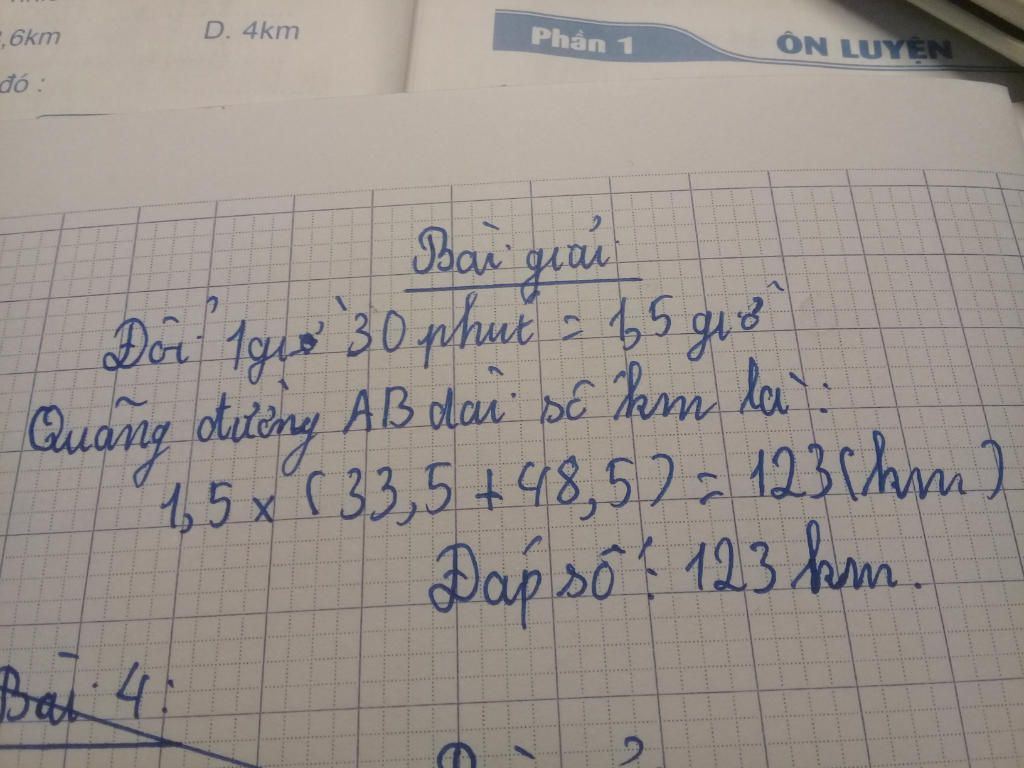 ,6km
D. 4km
Phần 1
ÔN LUYỆN
đó :
Bài giải
Đổi 1 giờ 30 phút = 1,5 giờ
Quãng đường AB dài số km là:
1,5 x (33,5 + 48,5) = 123 (km)
Đáp số: 123 km.
Bài 4: